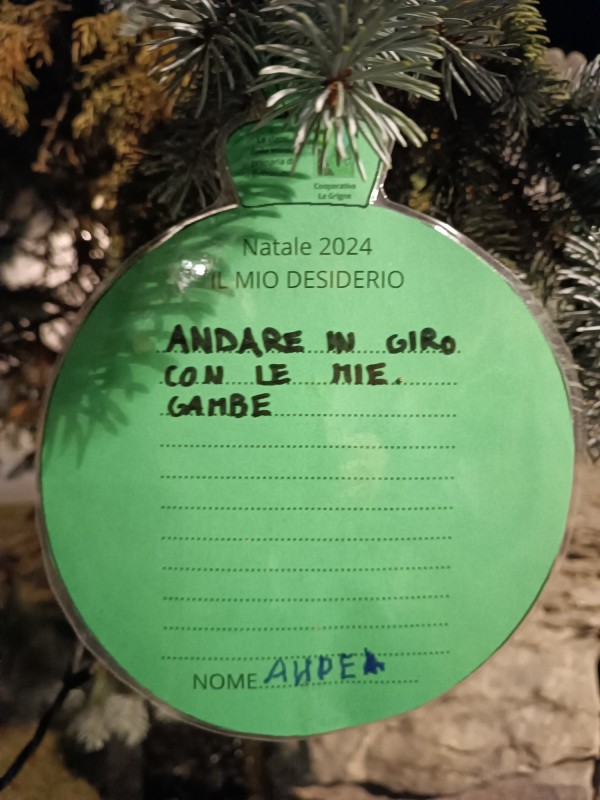 Cooperativa
Le Grigne
Natale 2024
IL MIO DESIDERIO
ANDARE IN GIRO
CON LE MIE.
GAMBE
NOME AHDEA